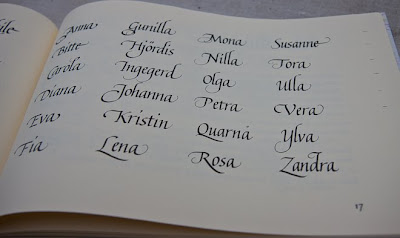 Anna
Bitte
Carola
Diana
Eva
Fia
Gunilla
Hjördis
Ingegerd
Johanna
Kristin
Lena
Mona
Nilla
Olga
Petra
Quarná
Rosa
Susanne
Tora
Ulla
Vera
Ylva
Zandra
17